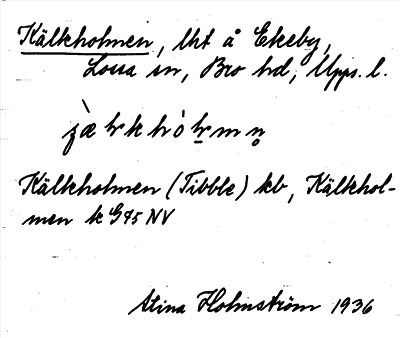 Kälkholmen, lht å Ekeby,
Lossa sn, Bro hd, Upps. l.
Kälkholmen (Tibble) kb, Kälkhol-
men k G 45 NV
Stina Holmström 1936